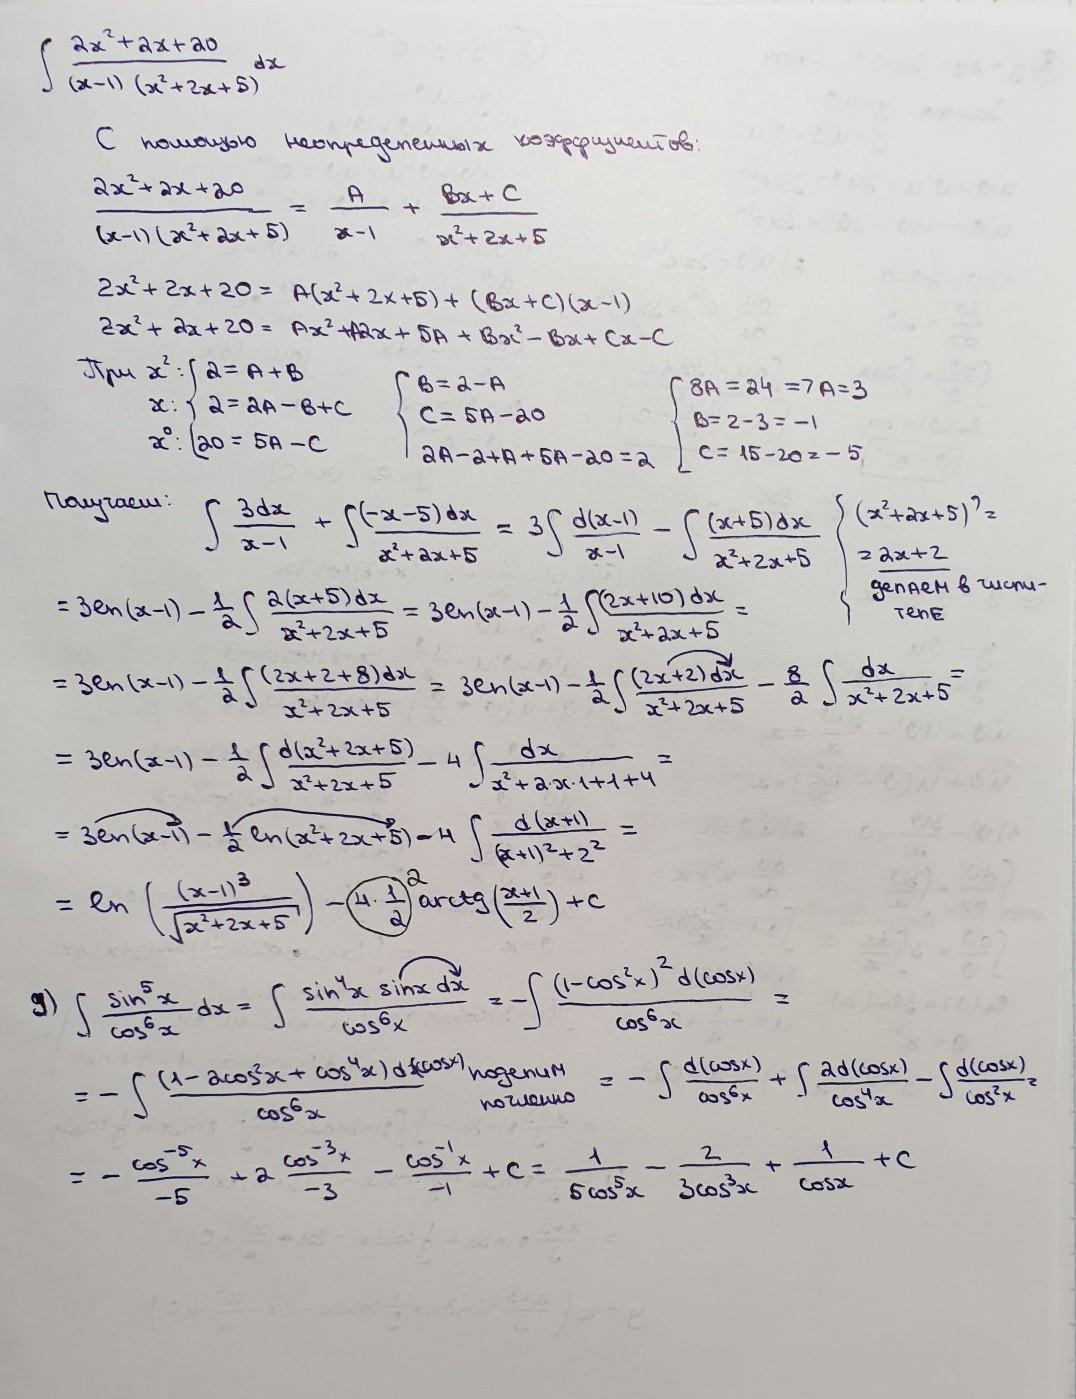 ∫ (2x²+2x+20)/((x-1)(x²+2x+5)) dx
С помощью неопределенных коэффициентов:
(2x²+2x+20)/((x-1)(x²+2x+5)) = A/(x-1) + (Bx+C)/(x²+2x+5)
2x²+2x+20 = A(x²+2x+5) + (Bx+C)(x-1)
2x²+2x+20 = Ax²+A2x+5A+Bx²-Bx+Cx-C
При x²: { 2=A+B { B=2-A { 8A=24 => A=3
x: { 2=2A-B+C { C=5A-20 { B=2-3=-1
x⁰: { 20=5A-C { 2A-2+A+5A-20=2 { C=15-20=-5
Получаем: ∫ 3dx/(x-1) + ∫ (-x-5)dx/(x²+2x+5) = 3∫ d(x-1)/(x-1) - ∫ (x+5)dx/(x²+2x+5) { (x²+2x+5)' =
= 2x+2
делаем в числи-
теле
= 3ln(x-1) - 1/2 ∫ 2(x+5)dx/(x²+2x+5) = 3ln(x-1) - 1/2 ∫ (2x+10)dx/(x²+2x+5) =
= 3ln(x-1) - 1/2 ∫ (2x+2+8)dx/(x²+2x+5) = 3ln(x-1) - 1/2 ∫ (2x+2)dx/(x²+2x+5) - 8/2 ∫ dx/(x²+2x+5) =
= 3ln(x-1) - 1/2 ∫ d(x²+2x+5)/(x²+2x+5) - 4 ∫ dx/(x²+2·x·1+1+4) =
= 3ln(x-1) - 1/2 ln(x²+2x+5) - 4 ∫ d(x+1)/((x+1)²+2²) =
= ln((x-1)³/√(x²+2x+5)) - 4·1/2 2 arctg((x+1)/2) + C
g) ∫ sin⁵x/cos⁶x dx = ∫ sin⁴x sinx dx/cos⁶x = -∫ (1-cos²x)² d(cosx)/cos⁶x =
= -∫ (1-2cos²x+cos⁴x) d(cosx)/cos⁶x поделим почленно = -∫ d(cosx)/cos⁶x + ∫ 2d(cosx)/cos⁴x - ∫ d(cosx)/cos²x =
= - cos⁻⁵x/-5 + 2 cos⁻³x/-3 - cos⁻¹x/-1 + C = 1/5cos⁵x - 2/3cos³x + 1/cosx + C